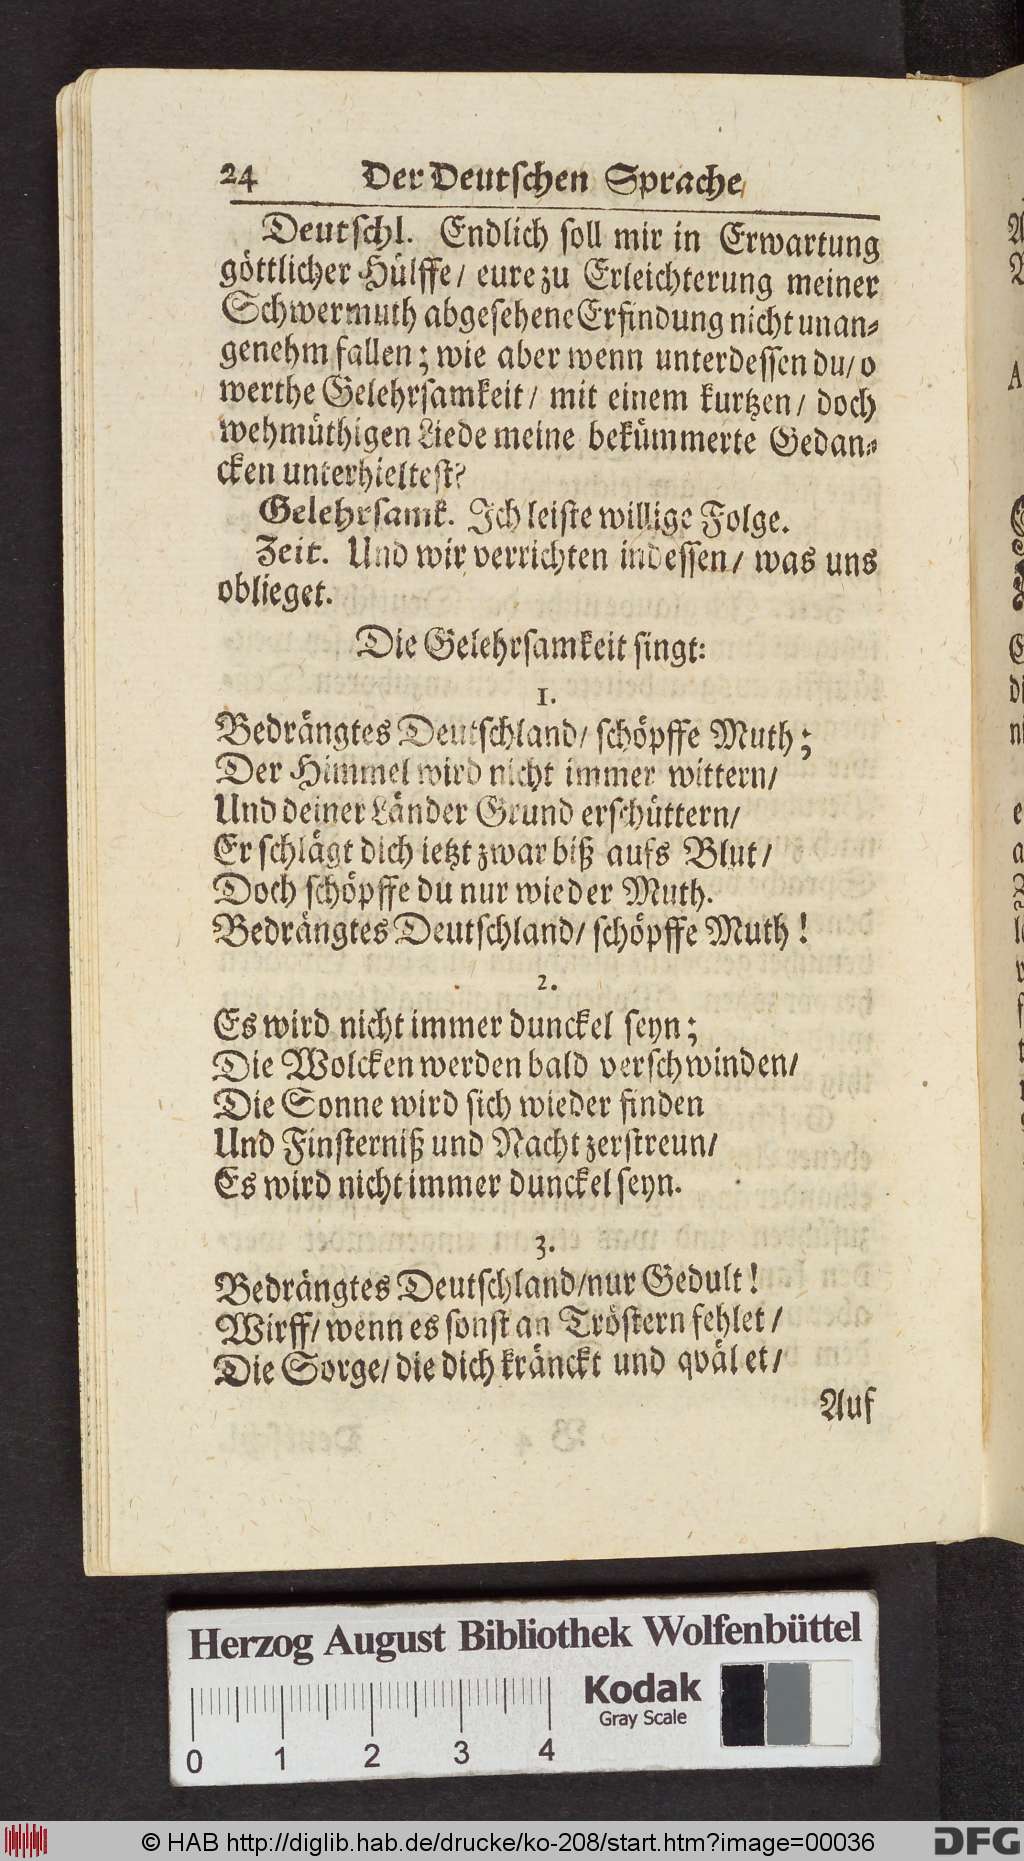 24 Der Deutschen Sprache
Deutschl. Endlich soll mir in Erwartung
göttlicher Hülffe/ eure zu Erleichterung meiner
Schwermuth abgesehene Erfindung nicht unan⸗
genehm fallen; wie aber wenn unterdessen du/ o
werthe Gelehrsamkeit/ mit einem kurtzen/ doch
wehmüthigen Liede meine bekümmerte Gedan⸗
cken unterhieltest?
Gelehrsamk. Ich leiste willige Folge.
Zeit. Und wir verrichten indessen/ was uns
oblieget.
Die Gelehrsamkeit singt:
1.
Bedrängtes Deutschland/ schöpffe Muth;
Der Himmel wird nicht immer wittern/
Und deiner Länder Grund erschüttern/
Er schlägt dich ietzt zwar biß aufs Blut/
Doch schöpffe du nur wieder Muth.
Bedrängtes Deutschland/ schöpffe Muth!
2.
Es wird nicht immer dunckel seyn;
Die Wolcken werden bald verschwinden/
Die Sonne wird sich wieder finden
Und Finsterniß und Nacht zerstreun/
Es wird nicht immer dunckel seyn.
3.
Bedrängtes Deutschland/ nur Gedult!
Wirff/ wenn es sonst an Tröstern fehlet/
Die Sorge/ die dich kränckt und qvälet/
Auf
Herzog August Bibliothek Wolfenbüttel
Kodak
Gray Scale
0 1 2 3 4
© HAB http://diglib.hab.de/drucke/ko-208/start.htm?image=00036
DFG